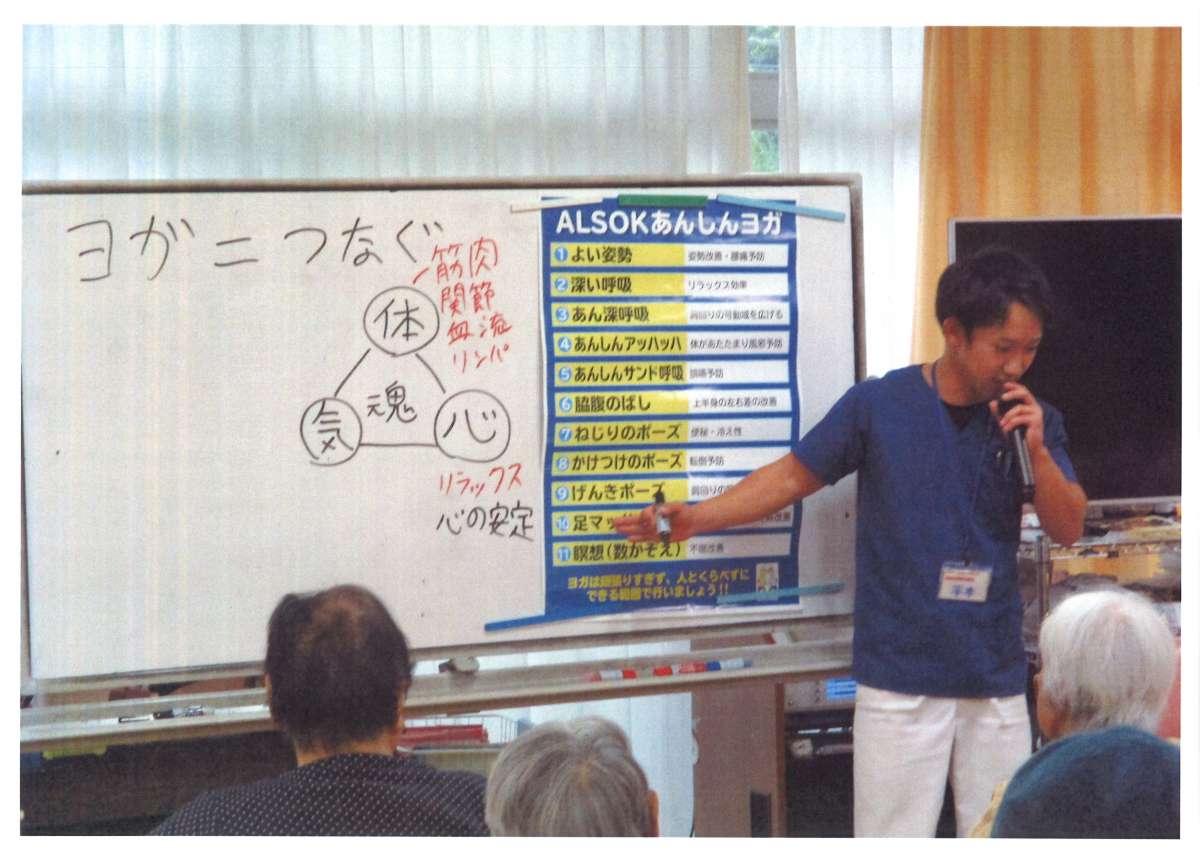 ヨガ＝つなぐ
筋肉
関節
血流
リンパ
体
魂
気
心
リラックス
心の安定
ALSOKあんしんヨガ
1 よい姿勢 姿勢改善・腰痛予防
2 深い呼吸 リラックス効果
3 あん深呼吸 肩回りの可動域を広げる
4 あんしんアッハッハ 体があたたまり風邪予防
5 あんしんサンド呼吸 誤嚥予防
6 脇腹のばし 上半身の左右差の改善
7 ねじりのポーズ 便秘・冷え性
8 かけつけのポーズ 転倒予防
9 げんきポーズ 肩回りの
10 足マッ 改善
11 瞑想（数かぞえ） 不眠改善
ヨガは頑張りすぎず、人とくらべずに
できる範囲で行いましょう!!